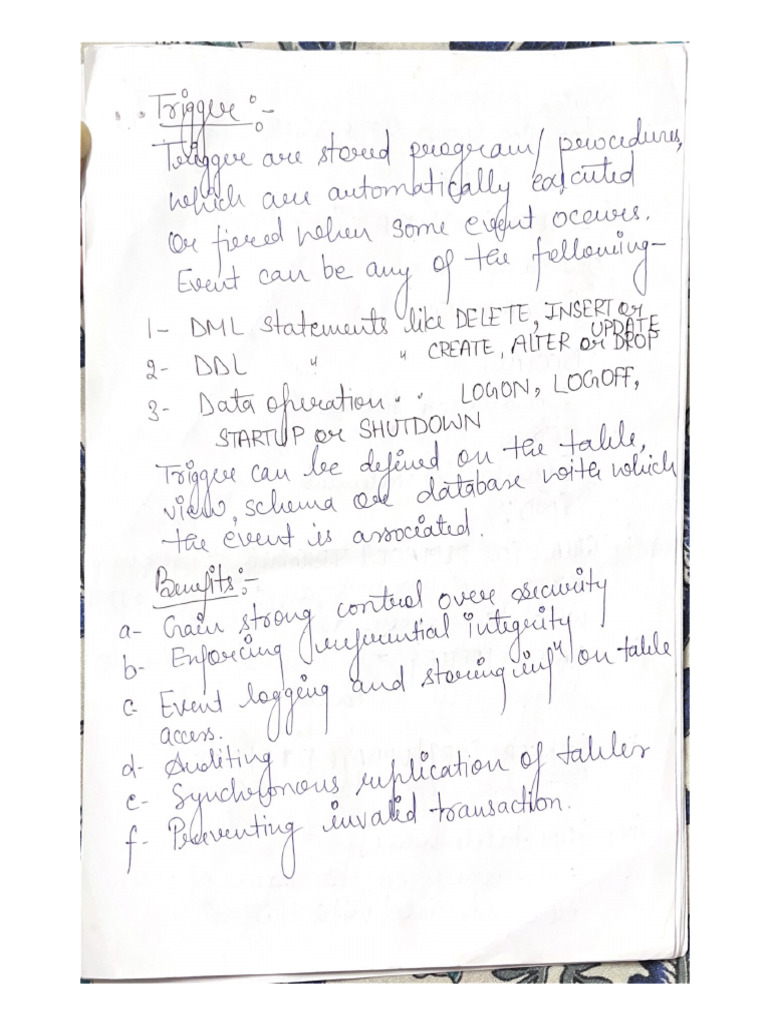 Trigger :-
Trigger are stored program/ procedures,
which are automatically executed
or fiered when some event occurs.
Event can be any of the following-
1- DML statements like DELETE, INSERT or UPDATE
2- DDL " " CREATE, ALTER or DROP
3- Data operation . . LOGON, LOGOFF,
STARTUP or SHUTDOWN
Trigger can be defined on the table,
view, schema or database with which
the event is associated.
Benefits:-
a- Gain strong control over security
b- Enforcing referential integrity
c- Event logging and storing infⁿ on table
access.
d- Auditing
e- Synchoronous replication of tables
f- Preventing invalid transaction.